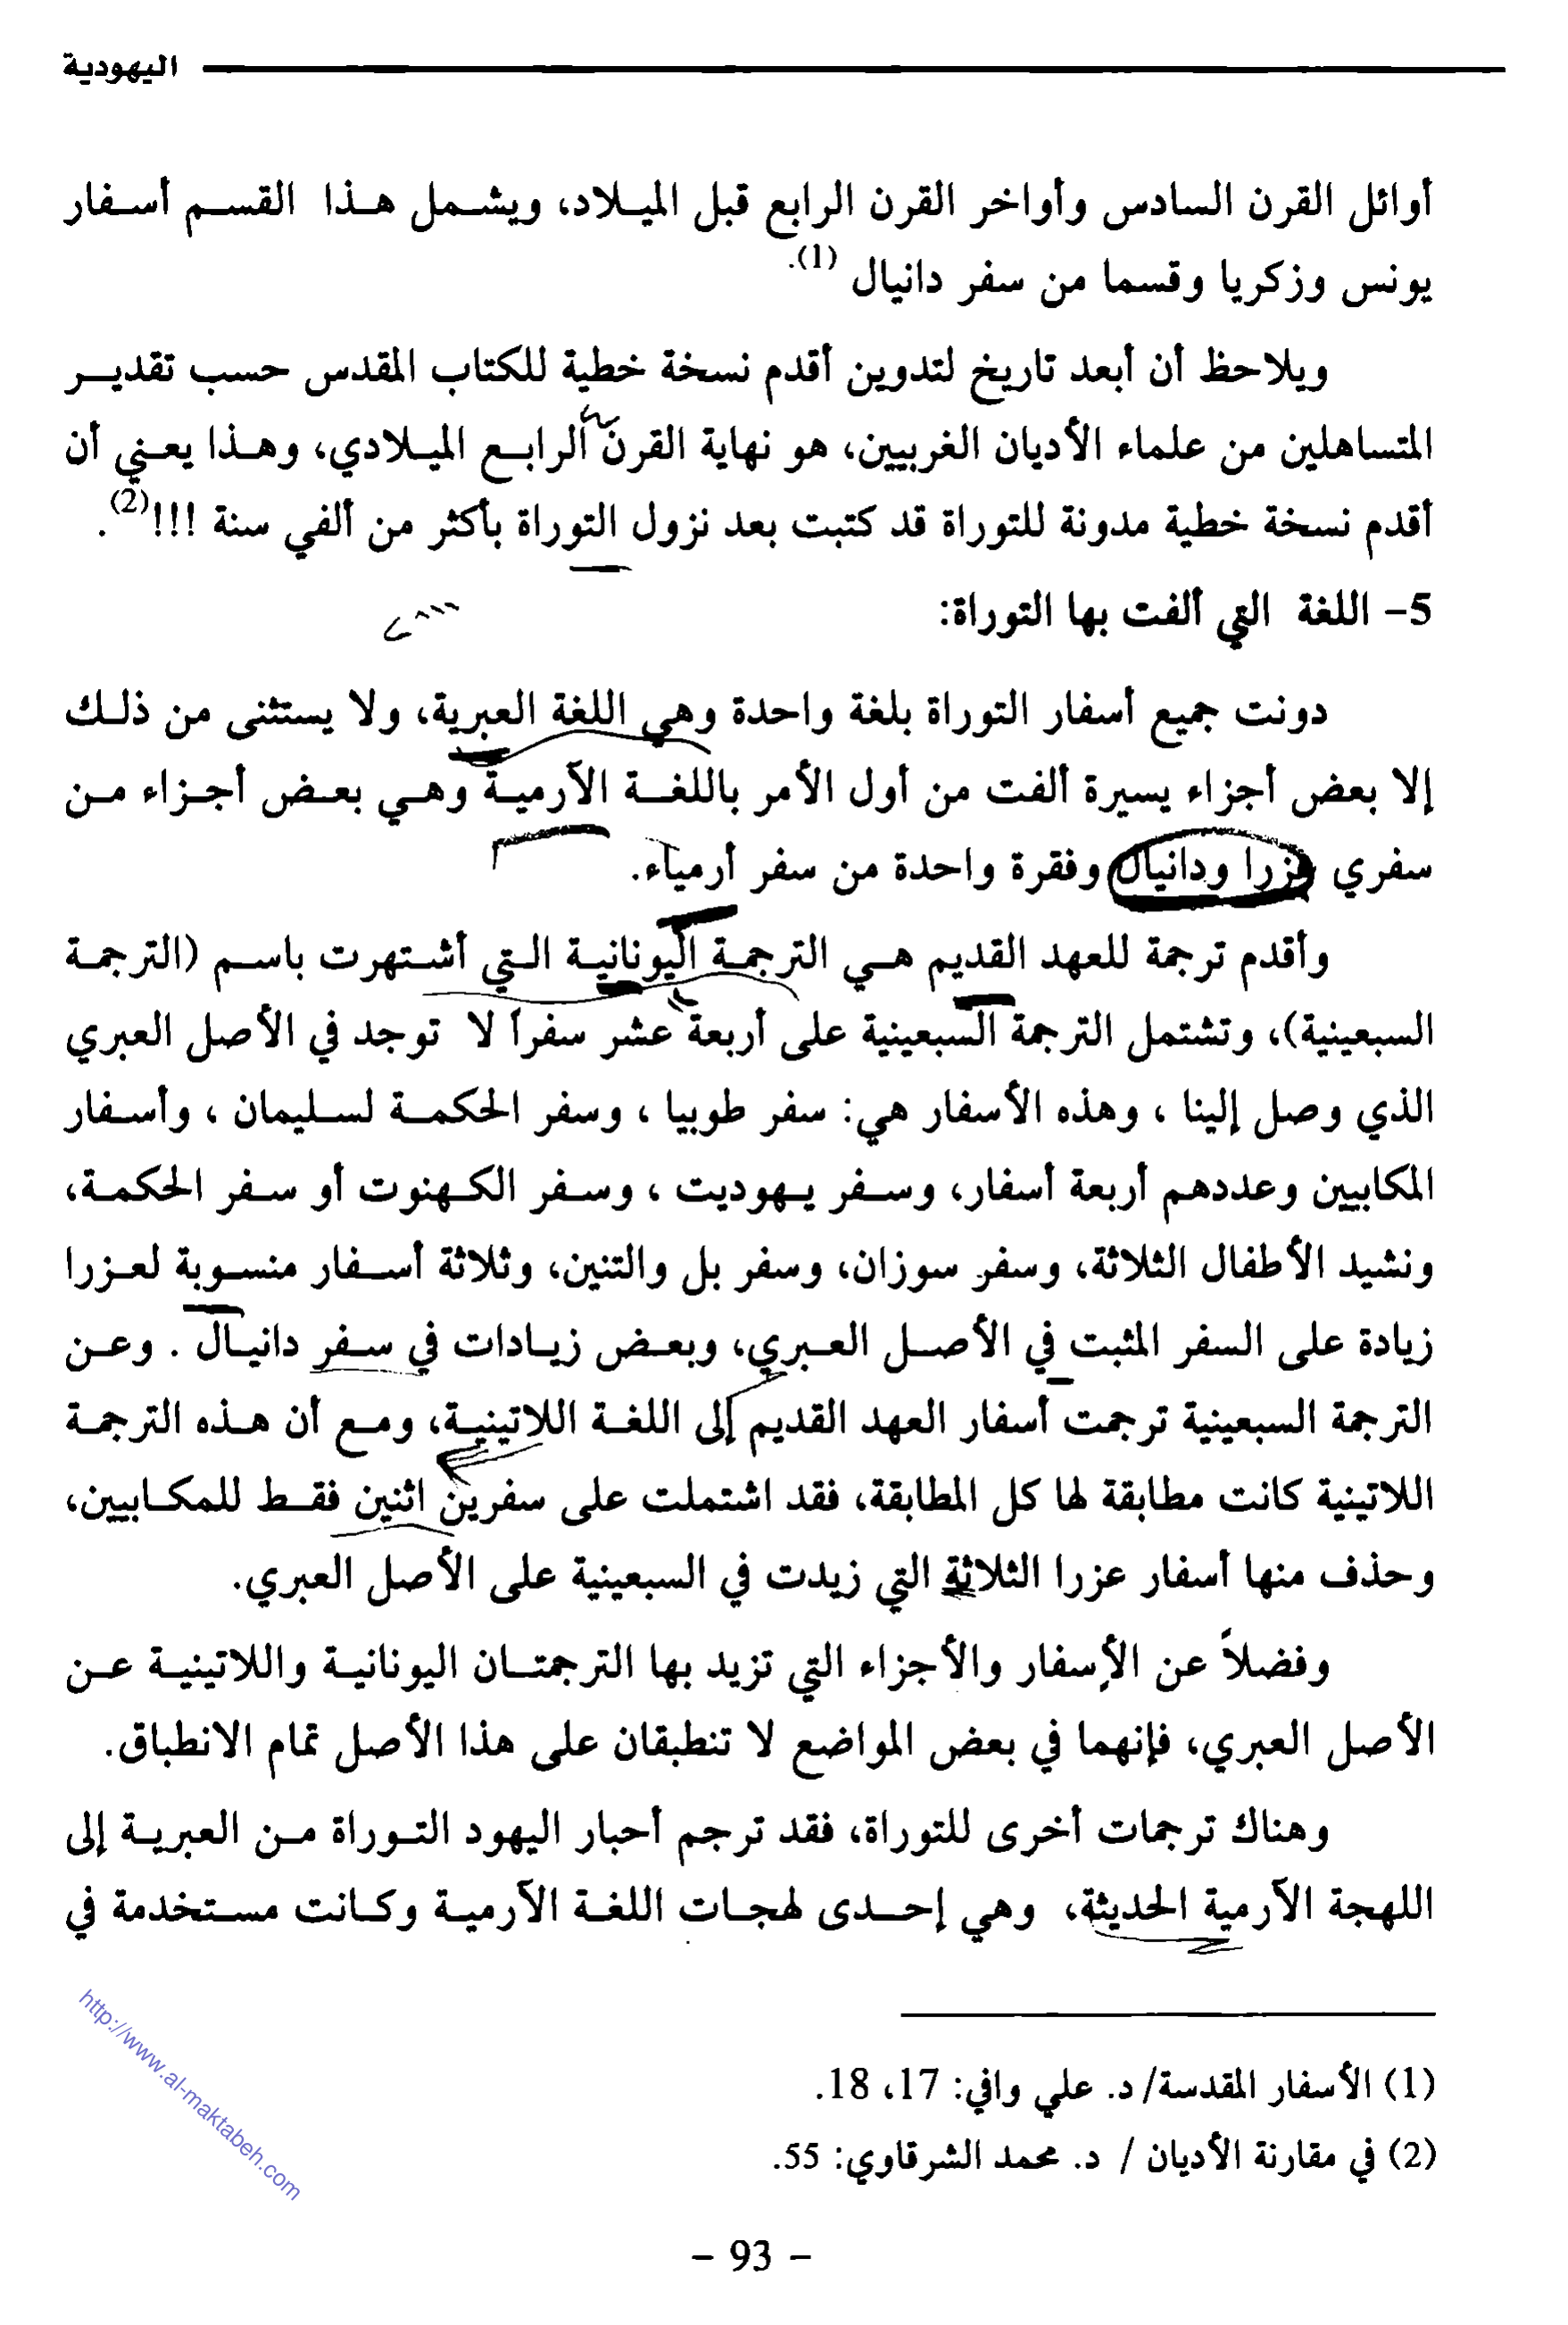 اليهودية
أوائل القرن السادس وأواخر القرن الرابع قبل الميلاد، ويشمل هذا القسم أسفار
يونس وزكريا وقسما من سفر دانيال (1).
ويلاحظ أن أبعد تاريخ لتدوين أقدم نسخة خطية للكتاب المقدس حسب تقدير
المتساهلين من علماء الأديان الغربيين، هو نهاية القرن الرابع الميلادي، وهذا يعني أن
أقدم نسخة خطية مدونة للتوراة قد كتبت بعد نزول التوراة بأكثر من ألفي سنة !!!(2).
5- اللغة التي ألفت بها التوراة:
دونت جميع أسفار التوراة بلغة واحدة وهي اللغة العبرية، ولا يستثنى من ذلك
إلا بعض أجزاء يسيرة ألفت من أول الأمر باللغة الآرمية وهي بعض أجزاء من
سفري عزرا ودانيال وفقرة واحدة من سفر أرمياء.
وأقدم ترجمة للعهد القديم هي الترجمة اليونانية التي أشتهرت باسم (الترجمة
السبعينية)، وتشتمل الترجمة السبعينية على أربعة عشر سفراً لا توجد في الأصل العبري
الذي وصل إلينا ، وهذه الأسفار هي: سفر طوبيا ، وسفر الحكمة لسليمان ، وأسفار
المكابيين وعددهم أربعة أسفار، وسفر يهوديت ، وسفر الكهنوت أو سفر الحكمة،
ونشيد الأطفال الثلاثة، وسفر سوزان، وسفر بل والتنين، وثلاثة أسفار منسوبة لعزرا
زيادة على السفر المثبت في الأصل العبري، وبعض زيادات في سفر دانيال . وعن
الترجمة السبعينية ترجمت أسفار العهد القديم إلى اللغة اللاتينية، ومع أن هذه الترجمة
اللاتينية كانت مطابقة لها كل المطابقة، فقد اشتملت على سفرين اثنين فقط للمكابيين،
وحذف منها أسفار عزرا الثلاثة التي زيدت في السبعينية على الأصل العبري.
وفضلاً عن الأسفار والأجزاء التي تزيد بها الترجمتان اليونانية واللاتينية عن
الأصل العبري، فإنهما في بعض المواضع لا تنطبقان على هذا الأصل تمام الانطباق.
وهناك ترجمات أخرى للتوراة، فقد ترجم أحبار اليهود التوراة من العبرية إلى
اللهجة الآرمية الحديثة، وهي إحدى لهجات اللغة الآرمية وكانت مستخدمة في
(1) الأسفار المقدسة/ د. علي وافي: 17، 18.
(2) في مقارنة الأديان / د. محمد الشرقاوي: 55.
http://www.al-maktabeh.com
- 93 -